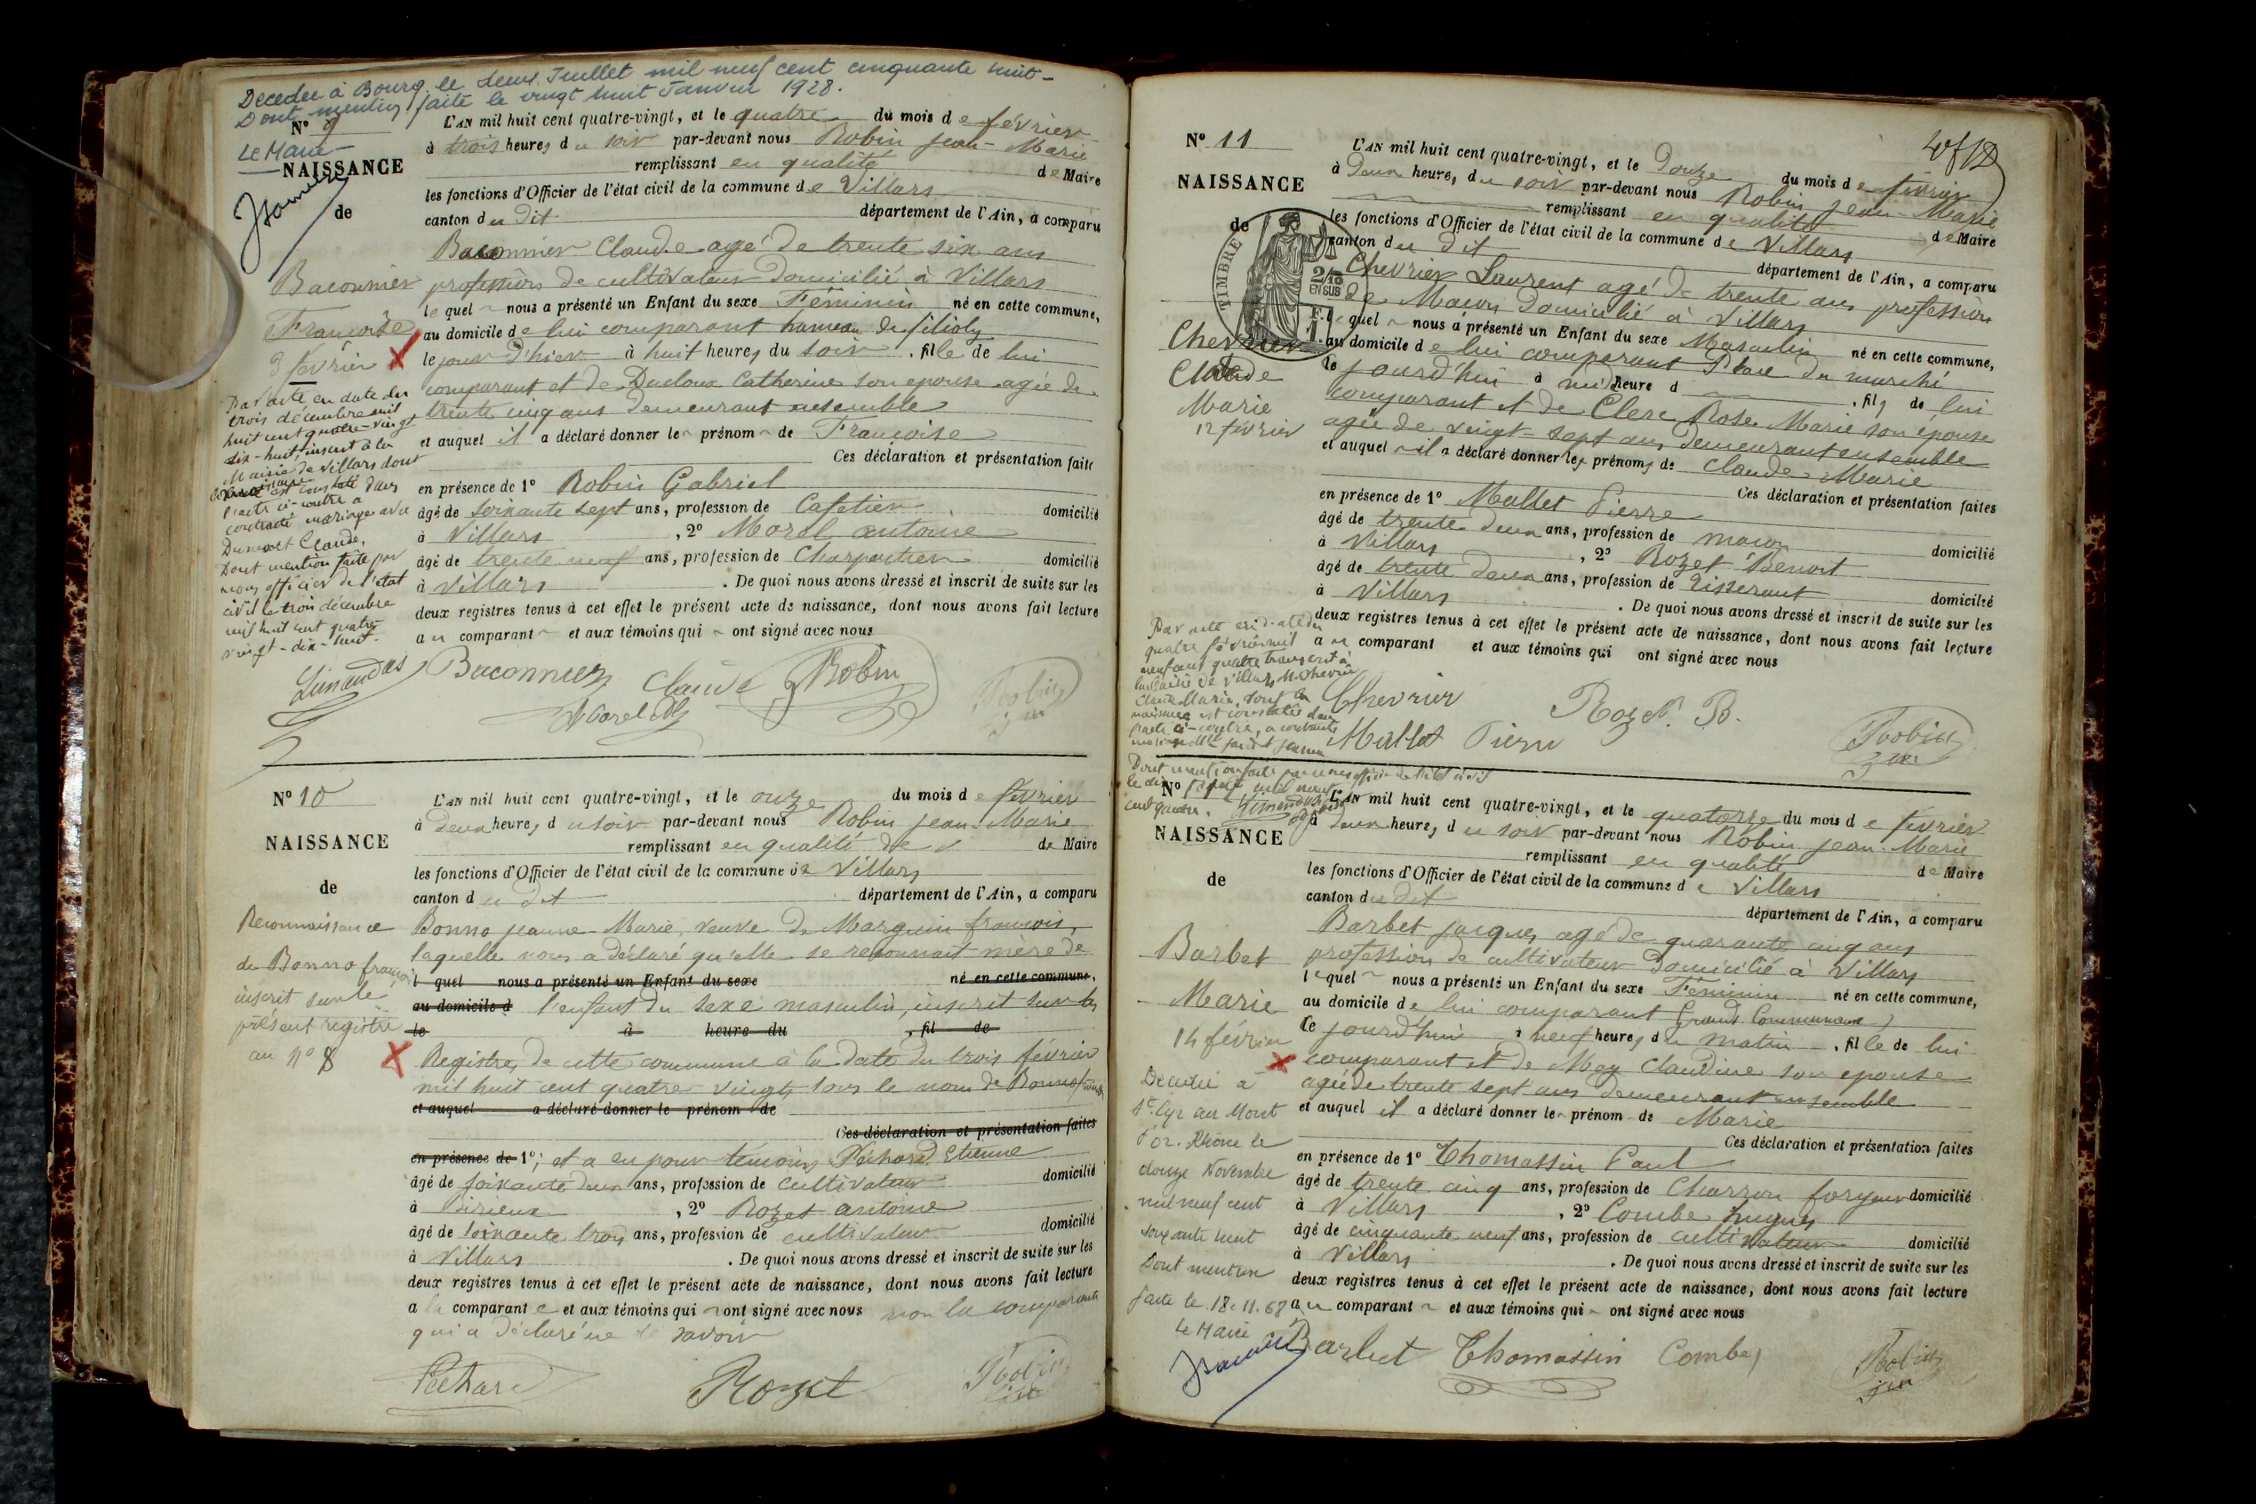 Decedee à Bourg le deux Juillet mil neuf cent cinquante huit
Dont mention faite le vingt huit Janvier 1928.
N° 9
Le Maire
NAISSANCE
de
Baconnier
Françoise
3 février
Par acte en date du
trois décembre mil
huit cent quatre-vingt
dix-huit, inscrit à la
Mairie de Villars dont
est constaté dans
l'acte ci-contre a
contracté mariage avec
Dumont Claude,
Dont mention faite par
nous officier de l'état
civil le trois décembre
mil huit cent quatre
vingt-dix-huit.
L'AN mil huit cent quatre-vingt, et le quatre du mois de février
à trois heures du soir par-devant nous Robin Jean-Marie
remplissant en qualité de Maire
les fonctions d'Officier de l'état civil de la commune de Villars
canton du dit département de l'Ain, a comparu
Baconnier Claude agé de trente six ans
profession de cultivateur domicilié à Villars
lequel nous a présenté un Enfant du sexe Féminin né en cette commune,
au domicile de lui comparant hameau de filioly
le jour d'hier à huit heures du soir, fille de lui
comparant et de Ducloux Catherine son epouse agée de
trente cinq ans demeurant ensemble
et auquel il a déclaré donner le prénom de Françoise
Ces déclaration et présentation faite
en présence de 1° Robin Gabriel
âgé de soixante sept ans, profession de Cafetier domicilié
à Villars, 2° Morel antoine
âgé de trente neuf ans, profession de Charpentier domicilié
à Villars. De quoi nous avons dressé et inscrit de suite sur les
deux registres tenus à cet effet le présent acte de naissance, dont nous avons fait lecture
au comparant et aux témoins qui ont signé avec nous
Baconnier Claude Robin
Morel Robin
N° 10
NAISSANCE
de
Reconnaissance
de Bonno françois
inscrit sur le
présent registre
au N° 8
L'AN mil huit cent quatre-vingt, et le onze du mois de février
à deux heures du soir par-devant nous Robin Jean-Marie
remplissant en qualité de Maire
les fonctions d'Officier de l'état civil de la commune de Villars
canton du dit département de l'Ain, a comparu
Bonno jeanne-Marie, veuve de Marguin francois,
laquelle nous a déclaré qu'elle se reconnait mère de
l quel nous a présenté un Enfant du sexe né en cette commune,
au domicile d l'enfant du sexe masculin, inscrit sur les
le à heure du, fil de
Registres de cette commune à la date du trois février
mil huit cent quatre-vingts sous le nom de Bonno
et auquel a déclaré donner le prénom de
Ces déclaration et présentation faites
en présence de 1°; et a eu pour témoins Péchard Etienne
âgé de soixante deux ans, profession de cultivateur domicilié
à Birieux, 2° Rozet antoine
âgé de soixante trois ans, profession de cultivateur domicilié
à Villars. De quoi nous avons dressé et inscrit de suite sur les
deux registres tenus à cet effet le présent acte de naissance, dont nous avons fait lecture
a la comparante et aux témoins qui ont signé avec nous non la comparante
qui a déclaré ne le savoir
Péchard Rozet Robin
N° 11
NAISSANCE
de
TIMBRE
2/10
EN SUS
Chevrier
Claude
Marie
12 février
L'AN mil huit cent quatre-vingt, et le Douze du mois de février
à Deux heures du soir par-devant nous Robin jean Marie
remplissant en qualité de Maire
les fonctions d'Officier de l'état civil de la commune de Villars
canton du dit département de l'Ain, a comparu
Chevrier Laurent agé de trente ans profession
de Maçon domicilié à Villars
lequel nous a présenté un Enfant du sexe Masculin né en cette commune,
au domicile de lui comparant Place du marché
le jourd'hui à midi heure d, fils de lui
comparant et de Clerc Rose Marie son épouse
agée de vingt-sept ans demeurant ensemble
et auquel il a déclaré donner les prénoms de Claude Marie
Ces déclaration et présentation faites
en présence de 1° Mallet Pierre
âgé de trente deux ans, profession de maçon domicilié
à Villars, 2° Rozet Benoit
âgé de trente deux ans, profession de Tisserant domicilié
à Villars. De quoi nous avons dressé et inscrit de suite sur les
deux registres tenus à cet effet le présent acte de naissance, dont nous avons fait lecture
au comparant et aux témoins qui ont signé avec nous
Par acte en date du
quatre février mil
neuf cent quatre transcrit à
la Mairie de Villars M. Chevrier
Claude Marie, dont la
naissance est constatée dans
l'acte ci-contre, a contracté
Chevrier Rozet. B.
Mallet Pierre Robin
N°
NAISSANCE
de
Barbet
Marie
14 février
Décédée à
St Cyr au Mont
d'or. Rhône le
douze Novembre
mil neuf cent
soixante huit
Dont mention
faite le 18.11.68
Le Maire
L'AN mil huit cent quatre-vingt, et le quatorze du mois de février
à deux heures du soir par-devant nous Robin jean Marie
remplissant en qualité de Maire
les fonctions d'Officier de l'état civil de la commune de Villars
canton du dit département de l'Ain, a comparu
Barbet jacques agé de quarante cinq ans
profession de cultivateur domicilié à Villars
lequel nous a présenté un Enfant du sexe Féminin né en cette commune,
au domicile de lui comparant
le jourd'hui à neuf heures du matin, fille de lui
comparant et de Mey Claudine son epouse
agée de trente sept ans demeurant ensemble
et auquel il a déclaré donner le prénom de Marie
Ces déclaration et présentation faites
en présence de 1° Thomassin Paul
âgé de trente cinq ans, profession de Charron forgeur domicilié
à Villars, 2° Combe hugues
âgé de cinquante neuf ans, profession de cultivateur domicilié
à Villars. De quoi nous avons dressé et inscrit de suite sur les
deux registres tenus à cet effet le présent acte de naissance, dont nous avons fait lecture
au comparant et aux témoins qui ont signé avec nous
Barbet Thomassin Combe Robin